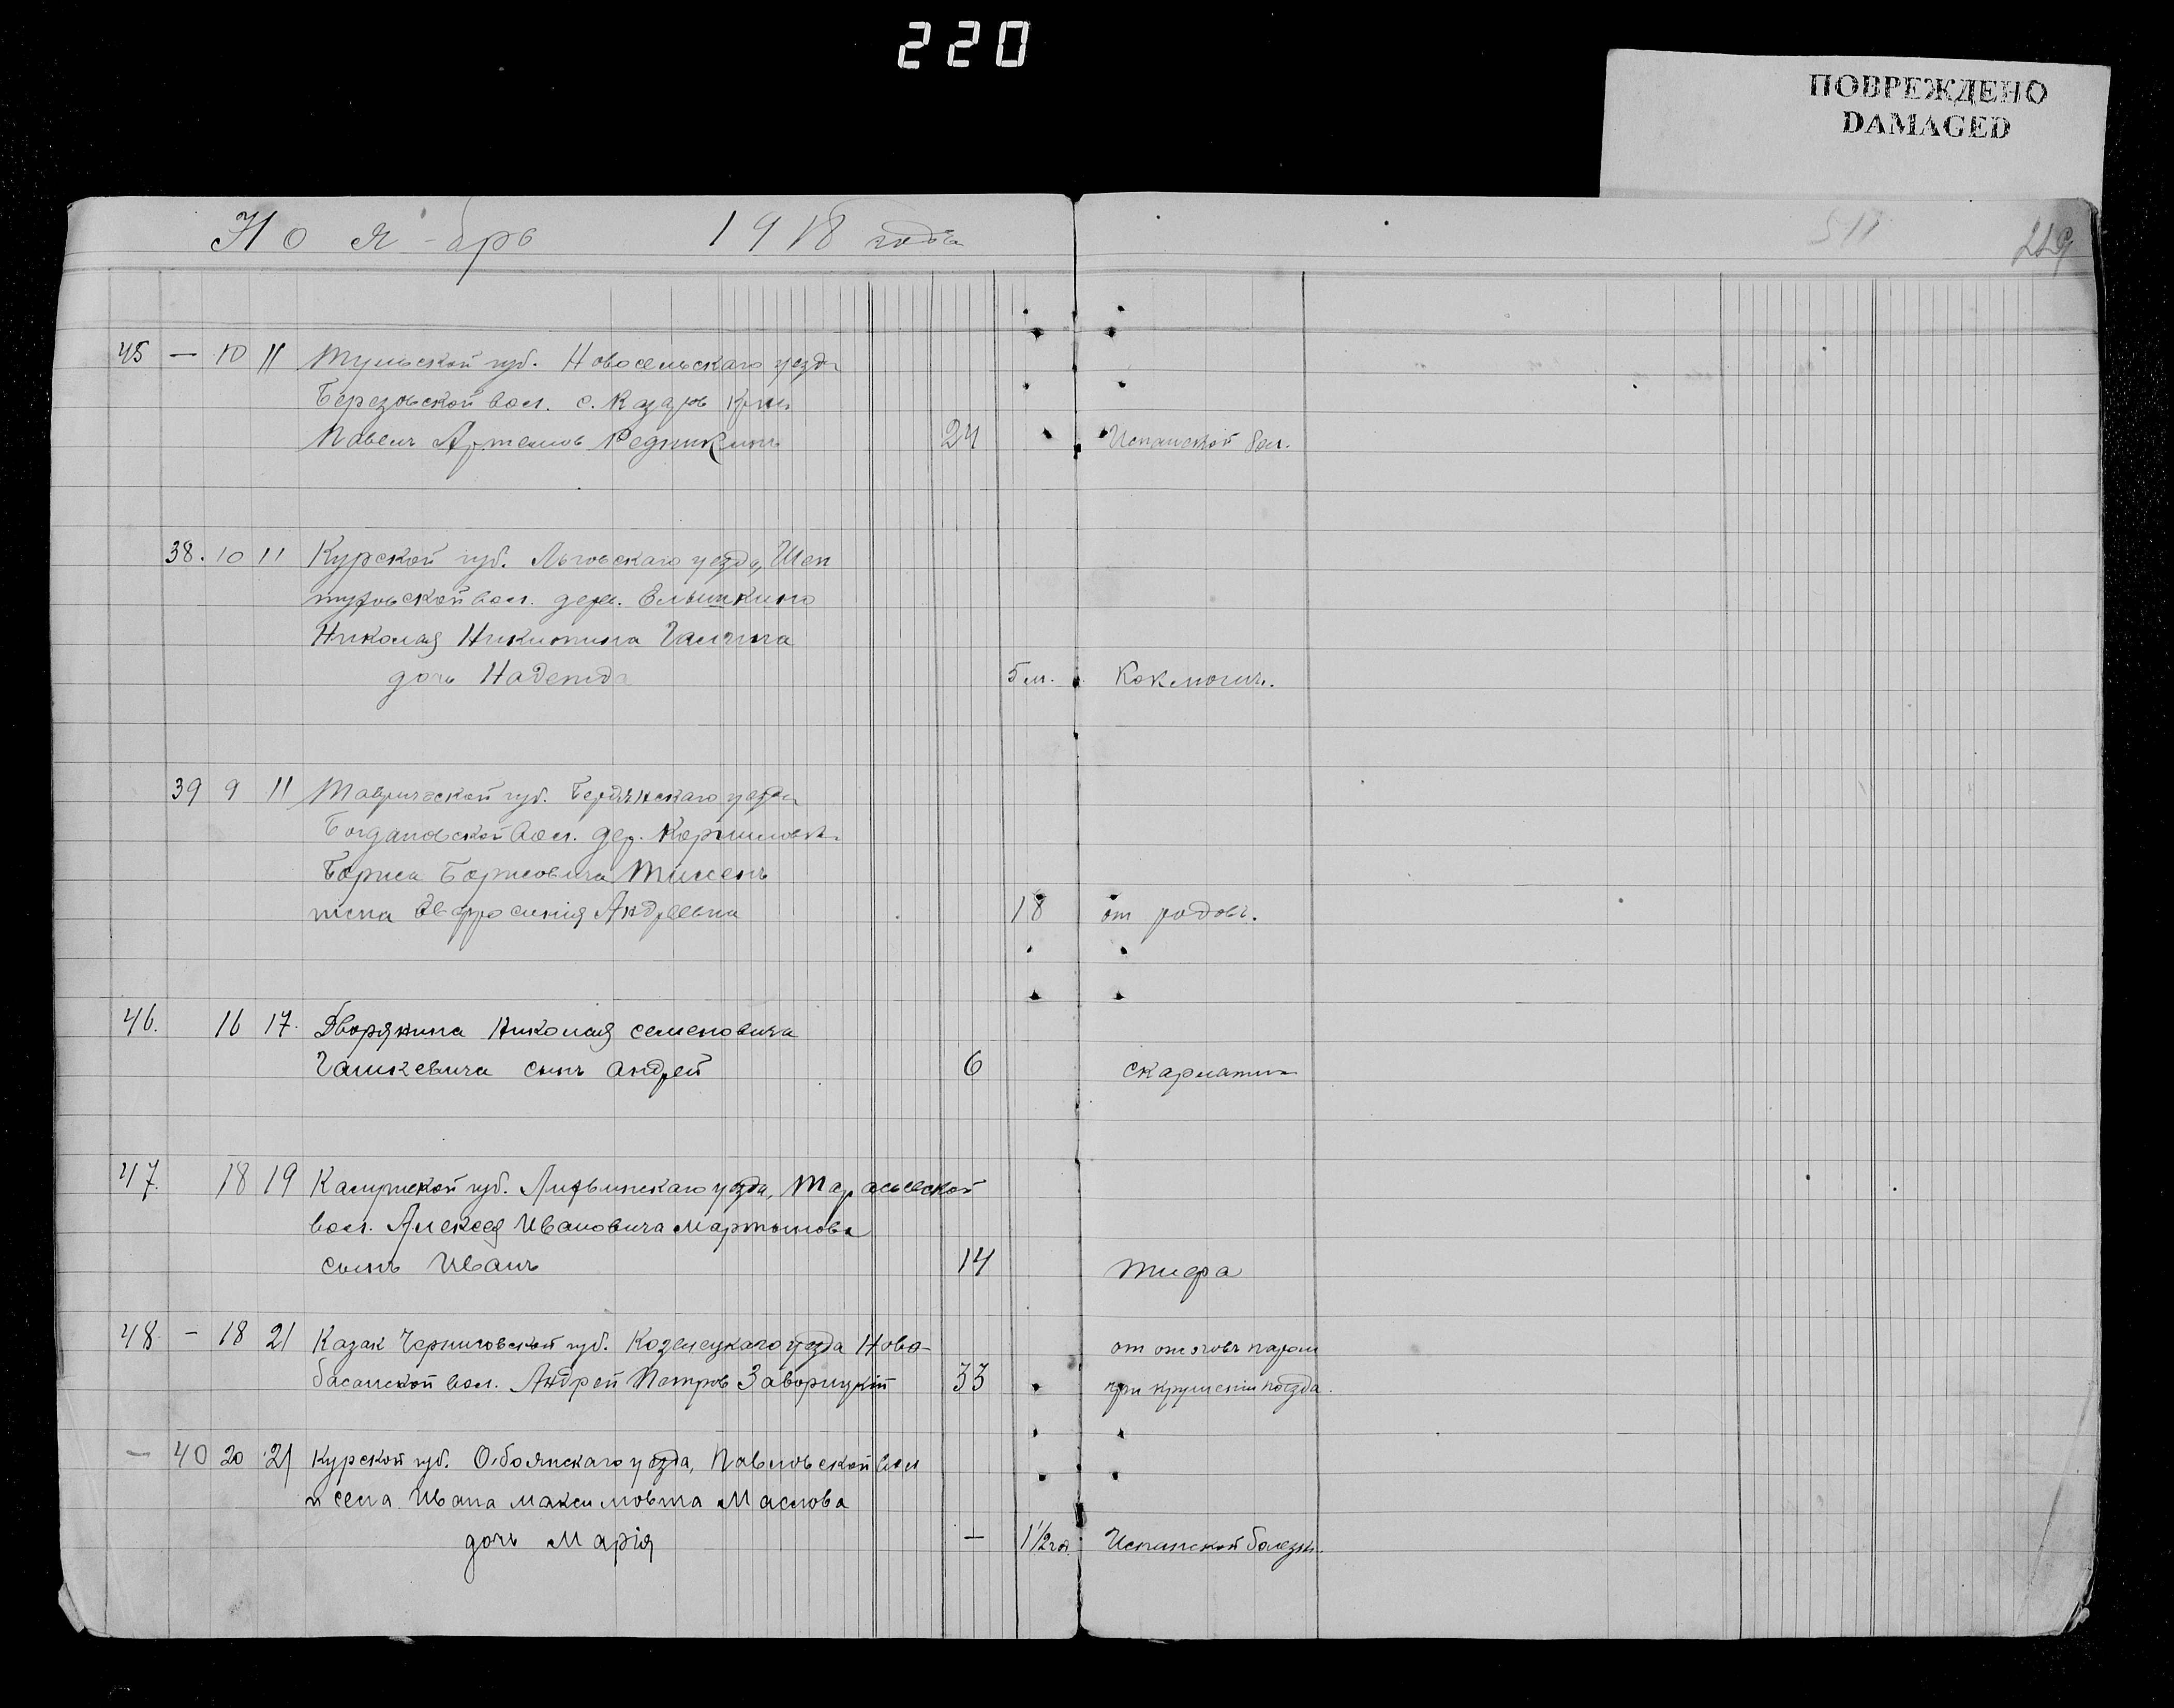 220
ПОВРЕЖДЕНО
DAMAGED
Ноябрь 1918 года
511
45 — 10 11 Тульской губ. Новосельскаго уезда
Березовской вол. с. Казарь Кр-нъ
Павелъ Артемов 24 Испанской бол.
38. 10 11 Курской губ. Льговскаго уезда, Шеп
туховской вол. дер.
Николая Никитина Галчина
дочь Надежда 5 м. Коклюшъ.
39 9 11 Таврической губ. Бердянскаго уезда
Богдановской вол. дер.
Бориса Борисовича Тиссенъ
жена Евфросинія Андреевна 18 от родовъ.
46. 16 17. Дворянина Николая Семеновича
Гашкевича сынъ Андрей 6 скарлатина
47. 18 19 Калужской губ. Лихвинскаго уезда,
вол. Алексея Ивановича Мартынова
сынъ Иванъ 14 тифа
48 — 18 21 Казак Черниговской губ. Козелецкаго уезда Ново-
басанской вол. Андрей Петров Заворицкій 33 от ожоговъ паром
при крушеніи поезда.
— 40 20 21 Курской губ. Обоянскаго уезда, Павловской вол
и села Ивана Максимовича Маслова
дочь Марія — 1 1/2 го. Испанской болезн.